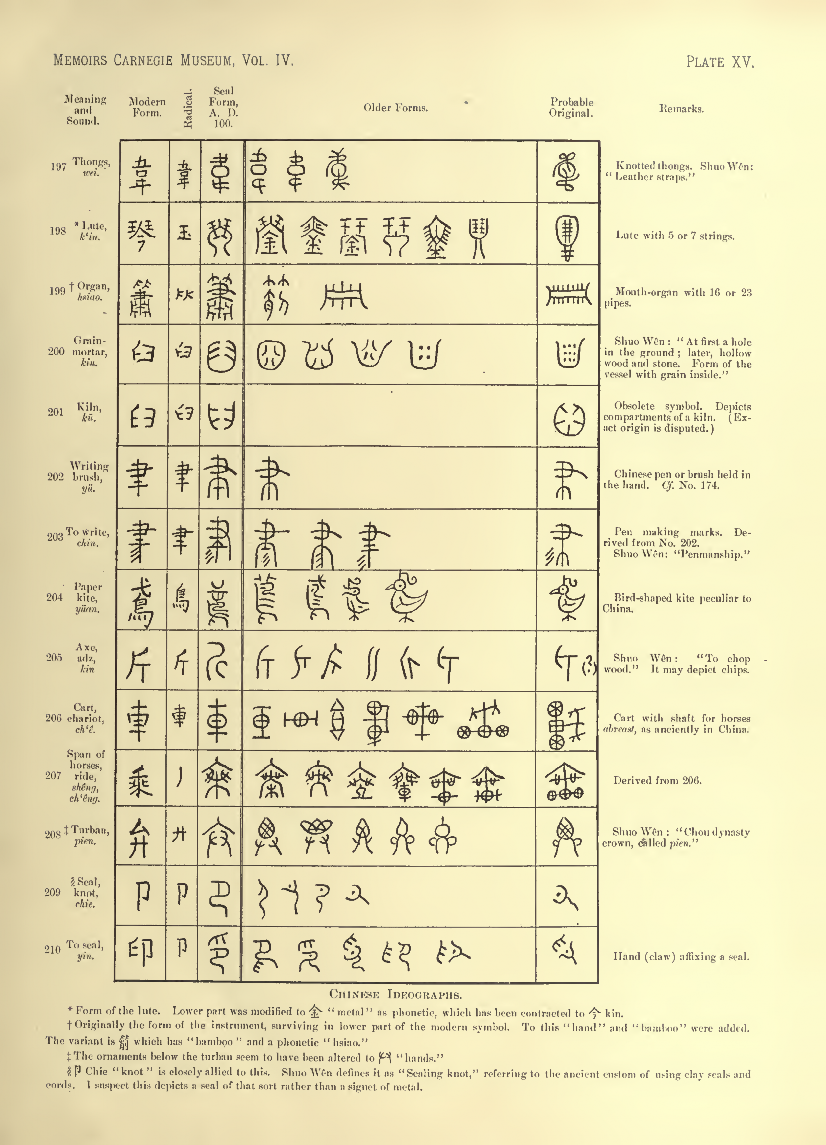 MEMOIRS CARNEGIE MUSEUM, VOL. IV.
PLATE XV.
Meaning and Sound.
Modern Form.
Radical.
Seal Form, A. D. 100.
Older Forms.
Probable Original.
Remarks.
197 Thongs, wei.
韋 韋
Knotted thongs. Shuo Wên:
“Leather straps.”
198 * Lute, k‘in.
玉
Lute with 5 or 7 strings.
199 † Organ, hsiao.
簫 ⺮
Mouth-organ with 16 or 23
pipes.
200 Grain-mortar, kiu.
臼 臼
Shuo Wên: “At first a hole
in the ground; later, hollow
wood and stone. Form of the
vessel with grain inside.”
201 Kiln, kü.
臼
Obsolete symbol. Depicts
compartments of a kiln. (Ex-
act origin is disputed.)
202 Writing brush, yü.
聿 聿
Chinese pen or brush held in
the hand. Cf. No. 174.
203 To write, chin.
聿
Pen making marks. De-
rived from No. 202.
Shuo Wên: “Penmanship.”
204 Paper kite, yüan.
鳶 鳥
Bird-shaped kite peculiar to
China.
205 Axe, adz, kin
斤 斤
(?)
Shuo Wên: “To chop
wood.” It may depict chips.
206 Cart, chariot, ch‘ê.
車 車
Cart with shaft for horses
abreast, as anciently in China.
207 Span of horses, ride, shêng, ch‘êng.
乘 丿
Derived from 206.
208 ‡ Turban, pien.
弁 廾
Shuo Wên: “Chou dynasty
crown, called pien.”
209 § Seal, knot, chie.
卩 卩
210 To seal, yin.
印 卩
Hand (claw) affixing a seal.
CHINESE IDEOGRAPHS.
* Form of the lute. Lower part was modified to 金 “metal” as phonetic, which has been contracted to 今 kin.
† Originally the form of the instrument, surviving in lower part of the modern symbol. To this “hand” and “bamboo” were added.
The variant is which has “bamboo” and a phonetic “hsiao.”
‡ The ornaments below the turban seem to have been altered to “hands.”
§ 卩 Chie “knot” is closely allied to this. Shuo Wên defines it as “Sealing knot,” referring to the ancient custom of using clay seals and
cords. I suspect this depicts a seal of that sort rather than a signet of metal.